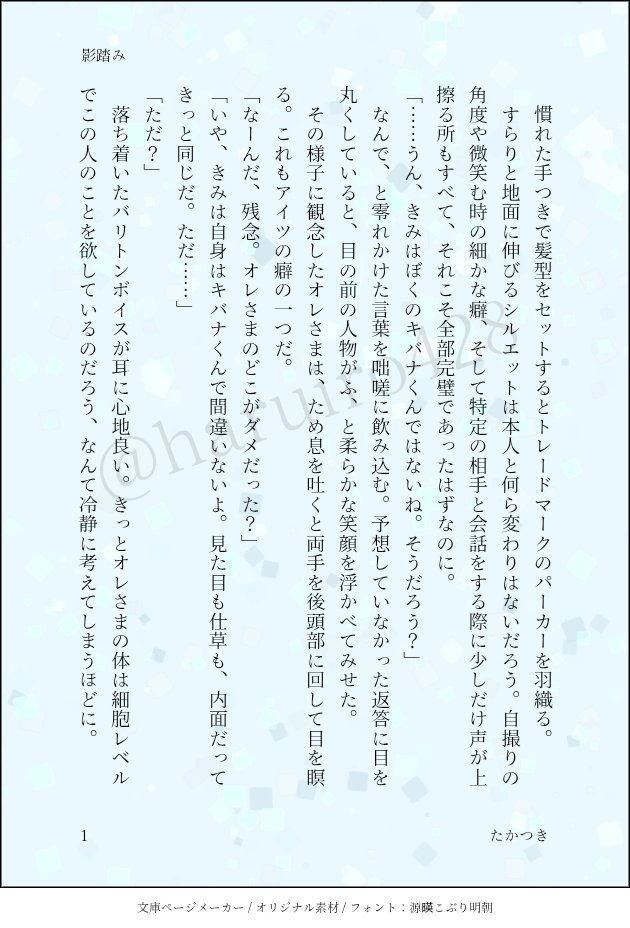 影踏み
　慣れた手つきで髪型をセットするとトレードマークのパーカーを羽織る。
　すらりと地面に伸びるシルエットは本人と何ら変わりはないだろう。自撮りの
角度や微笑む時の細かな癖、そして特定の相手と会話をする際に少しだけ声が上
擦る所もすべて、それこそ全部完璧であったはずなのに。
「……うん、きみはぼくのキバナくんではないね。そうだろう？」
　なんで、と零れかけた言葉を咄嗟に飲み込む。予想していなかった返答に目を
丸くしていると、目の前の人物がふ、と柔らかな笑顔を浮かべてみせた。
　その様子に観念したオレさまは、ため息を吐くと両手を後頭部に回して目を瞑
る。これもアイツの癖の一つだ。
「なーんだ、残念。オレさまのどこがダメだった？」
「いや、きみは自身はキバナくんで間違いないよ。見た目も仕草も、内面だって
きっと同じだ。ただ……」
「ただ？」
　落ち着いたバリトンボイスが耳に心地良い。きっとオレさまの体は細胞レベル
でこの人のことを欲しているのだろう、なんて冷静に考えてしまうほどに。
たかつき
1
文庫ページメーカー / オリジナル素材 / フォント：源暎こぶり明朝